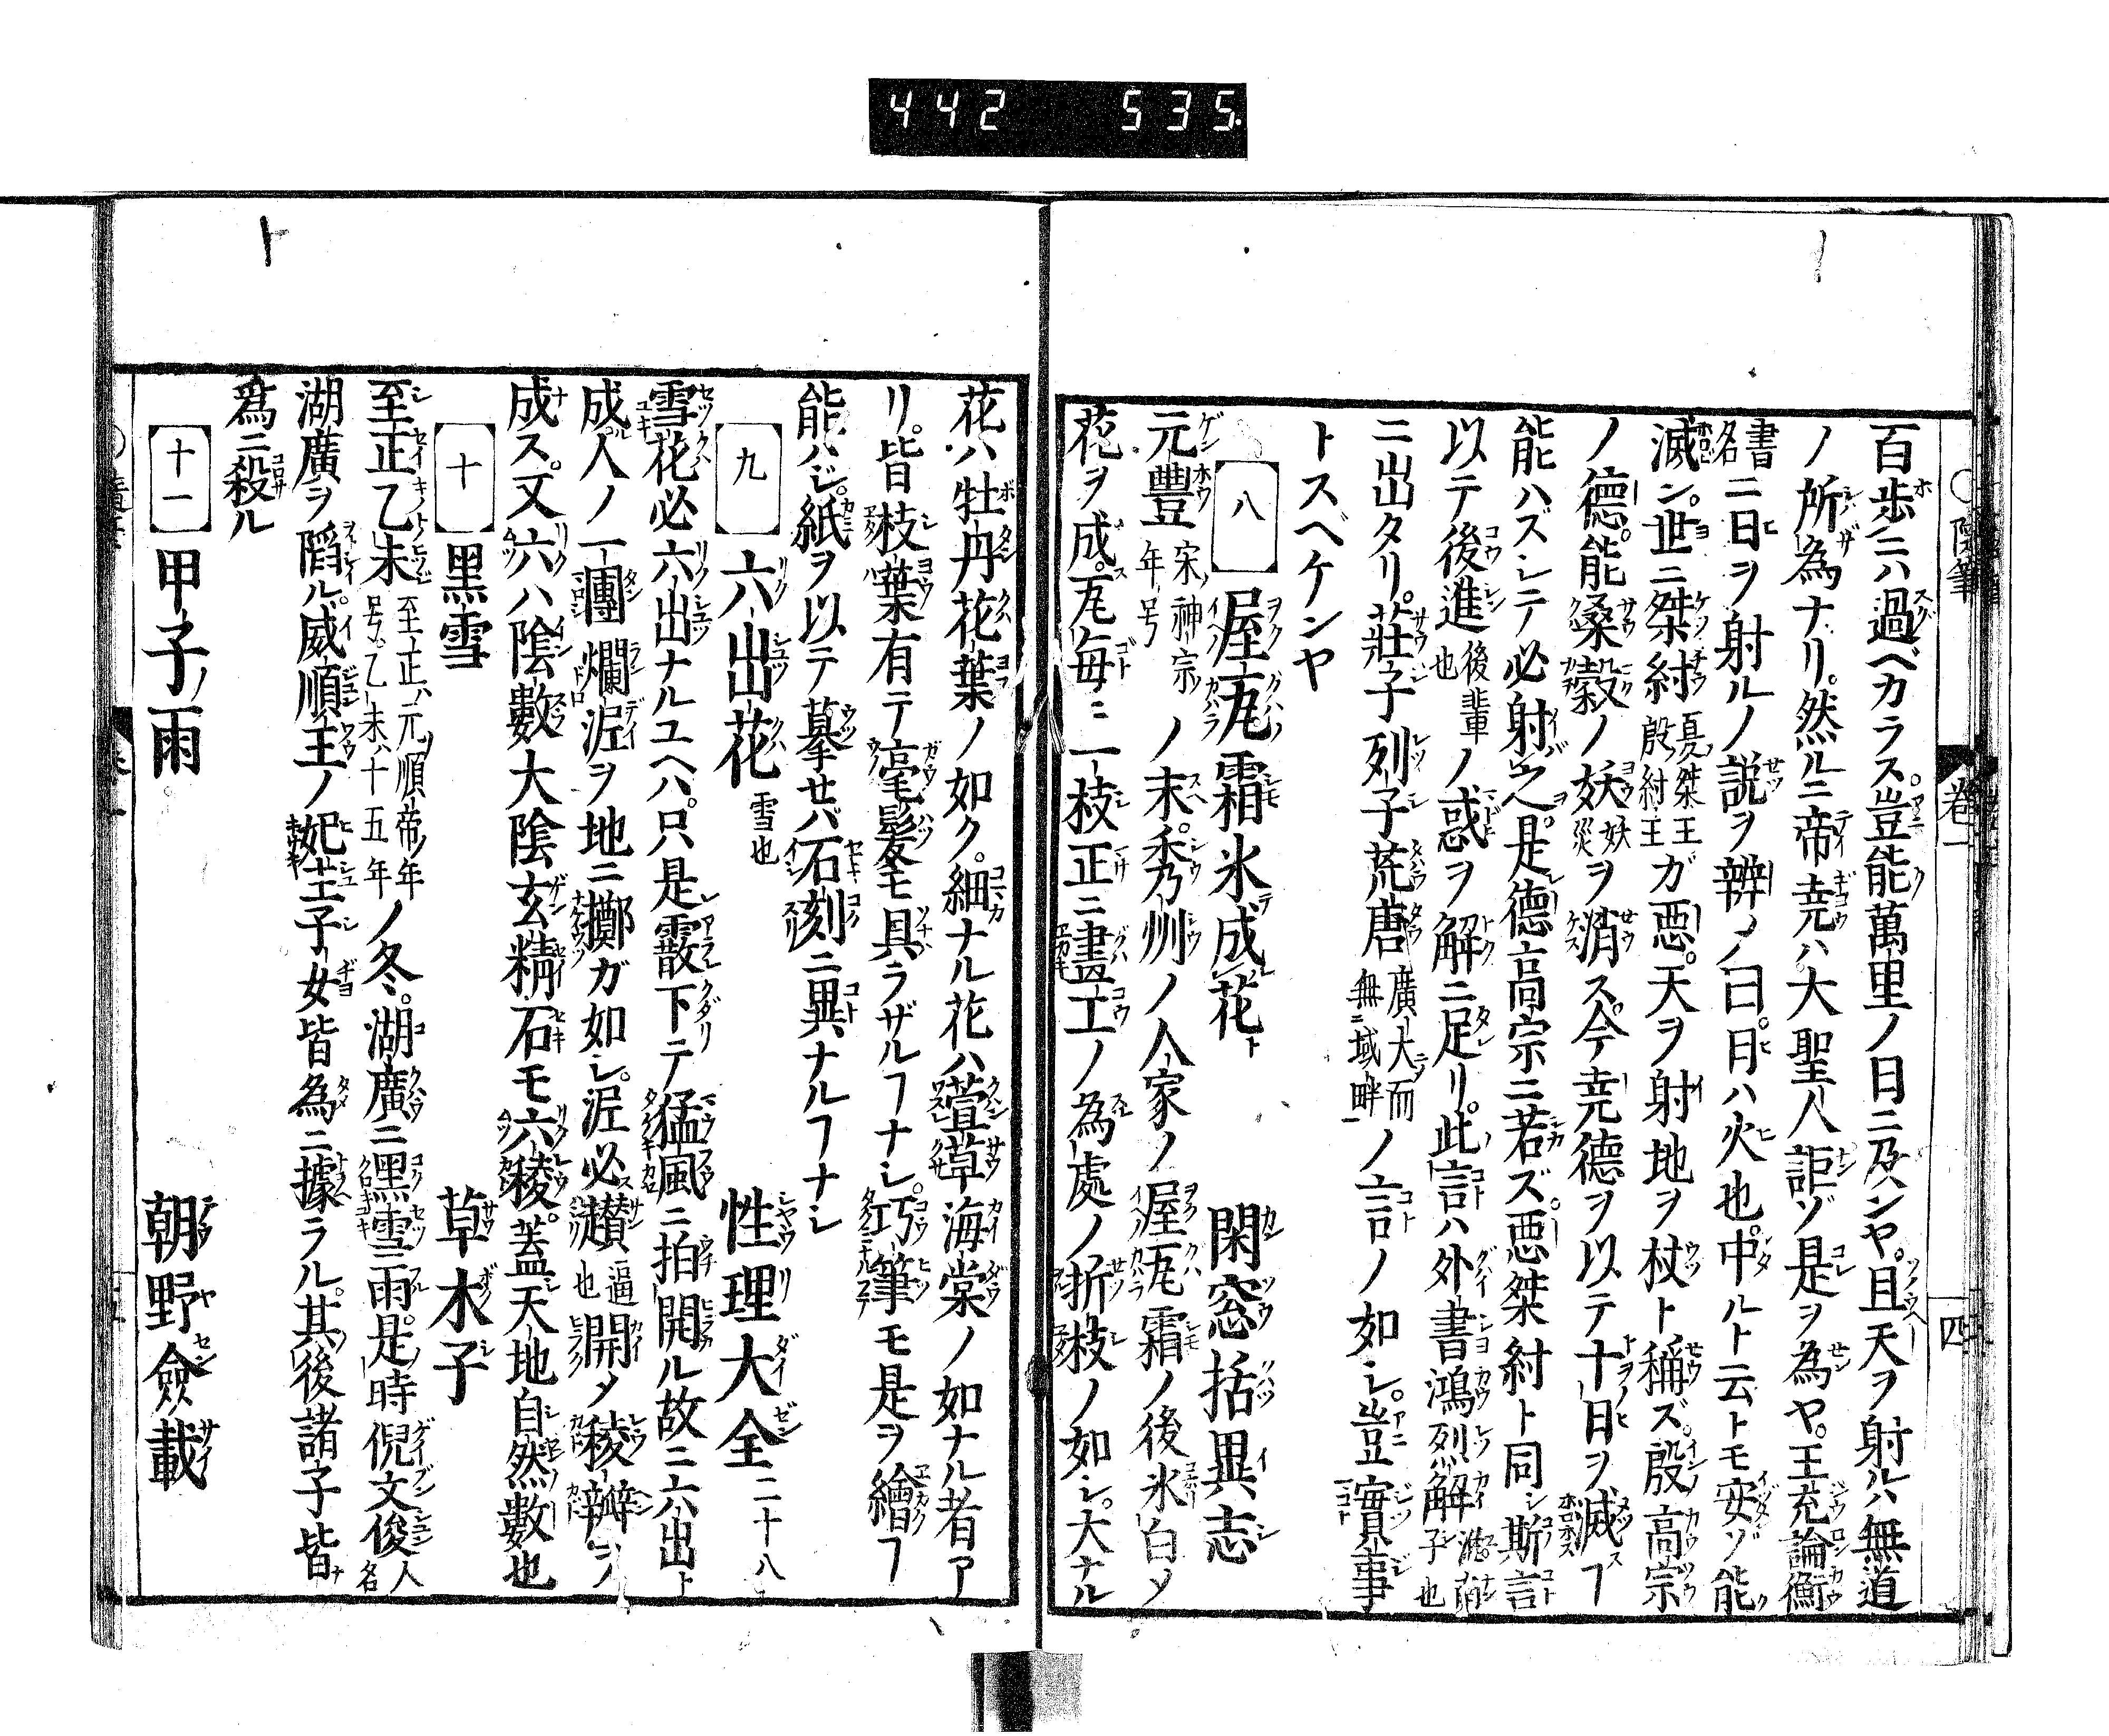 442 535.
百歩ニハ過ベカラス。豈能萬里ノ日ニ及ンヤ。且天ヲ射ルハ無道
ノ所為ナリ。然ルニ帝尭ハ大聖人詎ゾ是ヲ為ヤ。王充論衡
書名ニ日ヲ射ルノ説ヲ辨ノ曰。日ハ火也。中ルト云トモ安ゾ能
滅ン。世ニ桀紂夏ノ桀王殷ノ紂王ガ悪。天ヲ射地ヲ杖ト稱ズ。殷ノ高宗
ノ德。能桑穀ノ妖妖災ヲ消ス。今尭德ヲ以テ十日ヲ滅スヿ
能ハズシテ必射之。是德高宗ニ若ズ。悪桀紂ト同シ。斯言
以テ後進後輩也ノ惑ヲ解ニ足リ。此言ハ外書鴻烈解淮南子也
ニ出タリ。莊子列子荒唐廣大而無域畔ノ言ノ如シ。豈實事
トスベケンヤ
八 屋瓦霜氷成花ト 閑窓括異志
元豐宋ノ神宗ノ年号ノ末。秀州ノ人家ノ屋瓦霜ノ後氷白メ
花ヲ成。瓦毎ニ一枝正ニ畫工ノ為處ノ折枝ノ如シ。大ナル
花ハ牡丹花葉ノ如ク。細ナル花ハ萱草海棠ノ如ナル者ア
リ。皆枝葉有テ毫髮モ具ラザルヿナシ。巧筆モ是ヲ繪ヿ
能ハジ。紙ヲ以テ摹セバ石刻ニ異ナルヿナシ
九 六出花雪也 性理大全二十八
雪花必六出ナルユヘハ。只是霰下テ猛風ニ拍開ル故ニ六出ト
成人ノ一團爛泥ヲ地ニ擲ガ如シ。泥必𧽼逼也開メ稜瓣ヲ
成ス。又六ハ陰數大陰玄精石モ六稜。蓋天地自然數也
十 黒雪 草木子
至正乙未至正ハ元ノ順帝ノ年号。乙未ハ十五年ノ冬。湖廣ニ黒雪雨。是時倪文俊人名
湖廣ヲ䧟ル。威順王ノ妃妾子女皆為ニ據ラル。其後諸子皆
爲ニ殺ル
十一 甲子ノ雨 朝野僉載